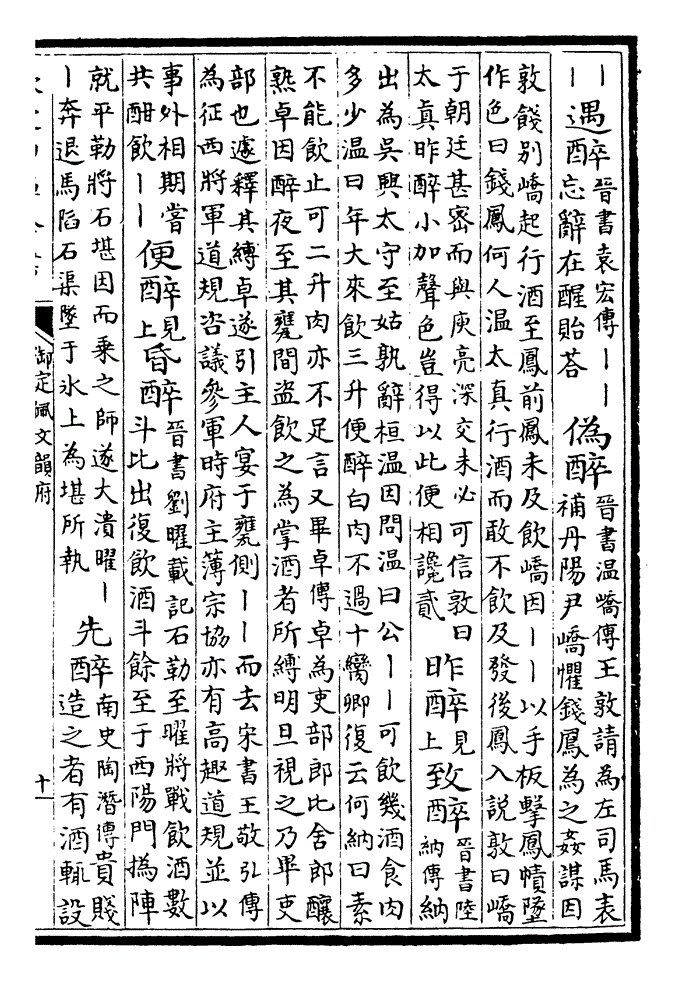 ｜
｜
遇醉
晉書袁宏傳｜｜
忘辭在醒貽荅
偽醉
晉書温嶠傳王敦請為左司馬表
補丹陽尹嶠懼錢鳳為之姦謀因
敦餞別嶠起行酒至鳳前鳳未及飲嶠因｜｜以手板擊鳳幘墜
作色曰錢鳳何人温太真行酒而敢不飲及發後鳳入説敦曰嶠
于朝廷甚宻而與庾亮深交未必可信敦曰
太真昨醉小加聲色豈得以此便相讒貳
昨醉
見
上
致醉
晉書陸
納傳納
出為吳興太守至姑孰辭桓温因問温曰公｜｜可飲幾酒食肉
多少温曰年大來飲三升便醉白肉不過十臠卿復云何納曰素
不能飲止可二升肉亦不足言又畢卓傳卓為吏部郎比舍郎釀
熟卓因醉夜至其甕間盗飲之為掌酒者所縛明旦視之乃畢吏
部也遽釋其縛卓遂引主人宴于甕側｜｜而去宋書王敬弘傳
為征西將軍道規咨議參軍時府主薄宗協亦有高趣道規並以
事外相期嘗
共酣飲｜｜
便醉
見
上
昏醉
晉書劉曜載記石勒至曜將戰飲酒數
斗比出復飲酒斗餘至于西陽門撝陣
就平勒將石堪因而乗之師遂大潰曜｜
｜奔退馬陷石渠墜于氷上為堪所執
先醉
南史陶潛傳貴賤
造之者有酒輒設
御定佩文韻府
十